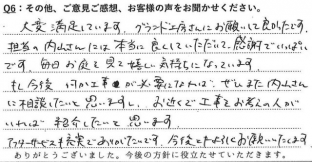 Q6：その他、ご意見ご感想、お客様の声をお聞かせください。
大変満足しています。グランド工房さんにお願いして良かったです。
担当の内山さんには本当に良くしていただいて、感謝でいっぱい
です。毎日お庭を見て嬉しい気持ちになっています。
もし今後 何か工事が必要になれば、ぜひまた内山さん
に相談したいと思いますし、お近くで工事をお考えの人が
いれば 紹介したいと思います。
アフターサービスも充実でありがたいです。今後ともよろしくお願いいたします。
ありがとうございました。今後の方針に役立たせていただきます。